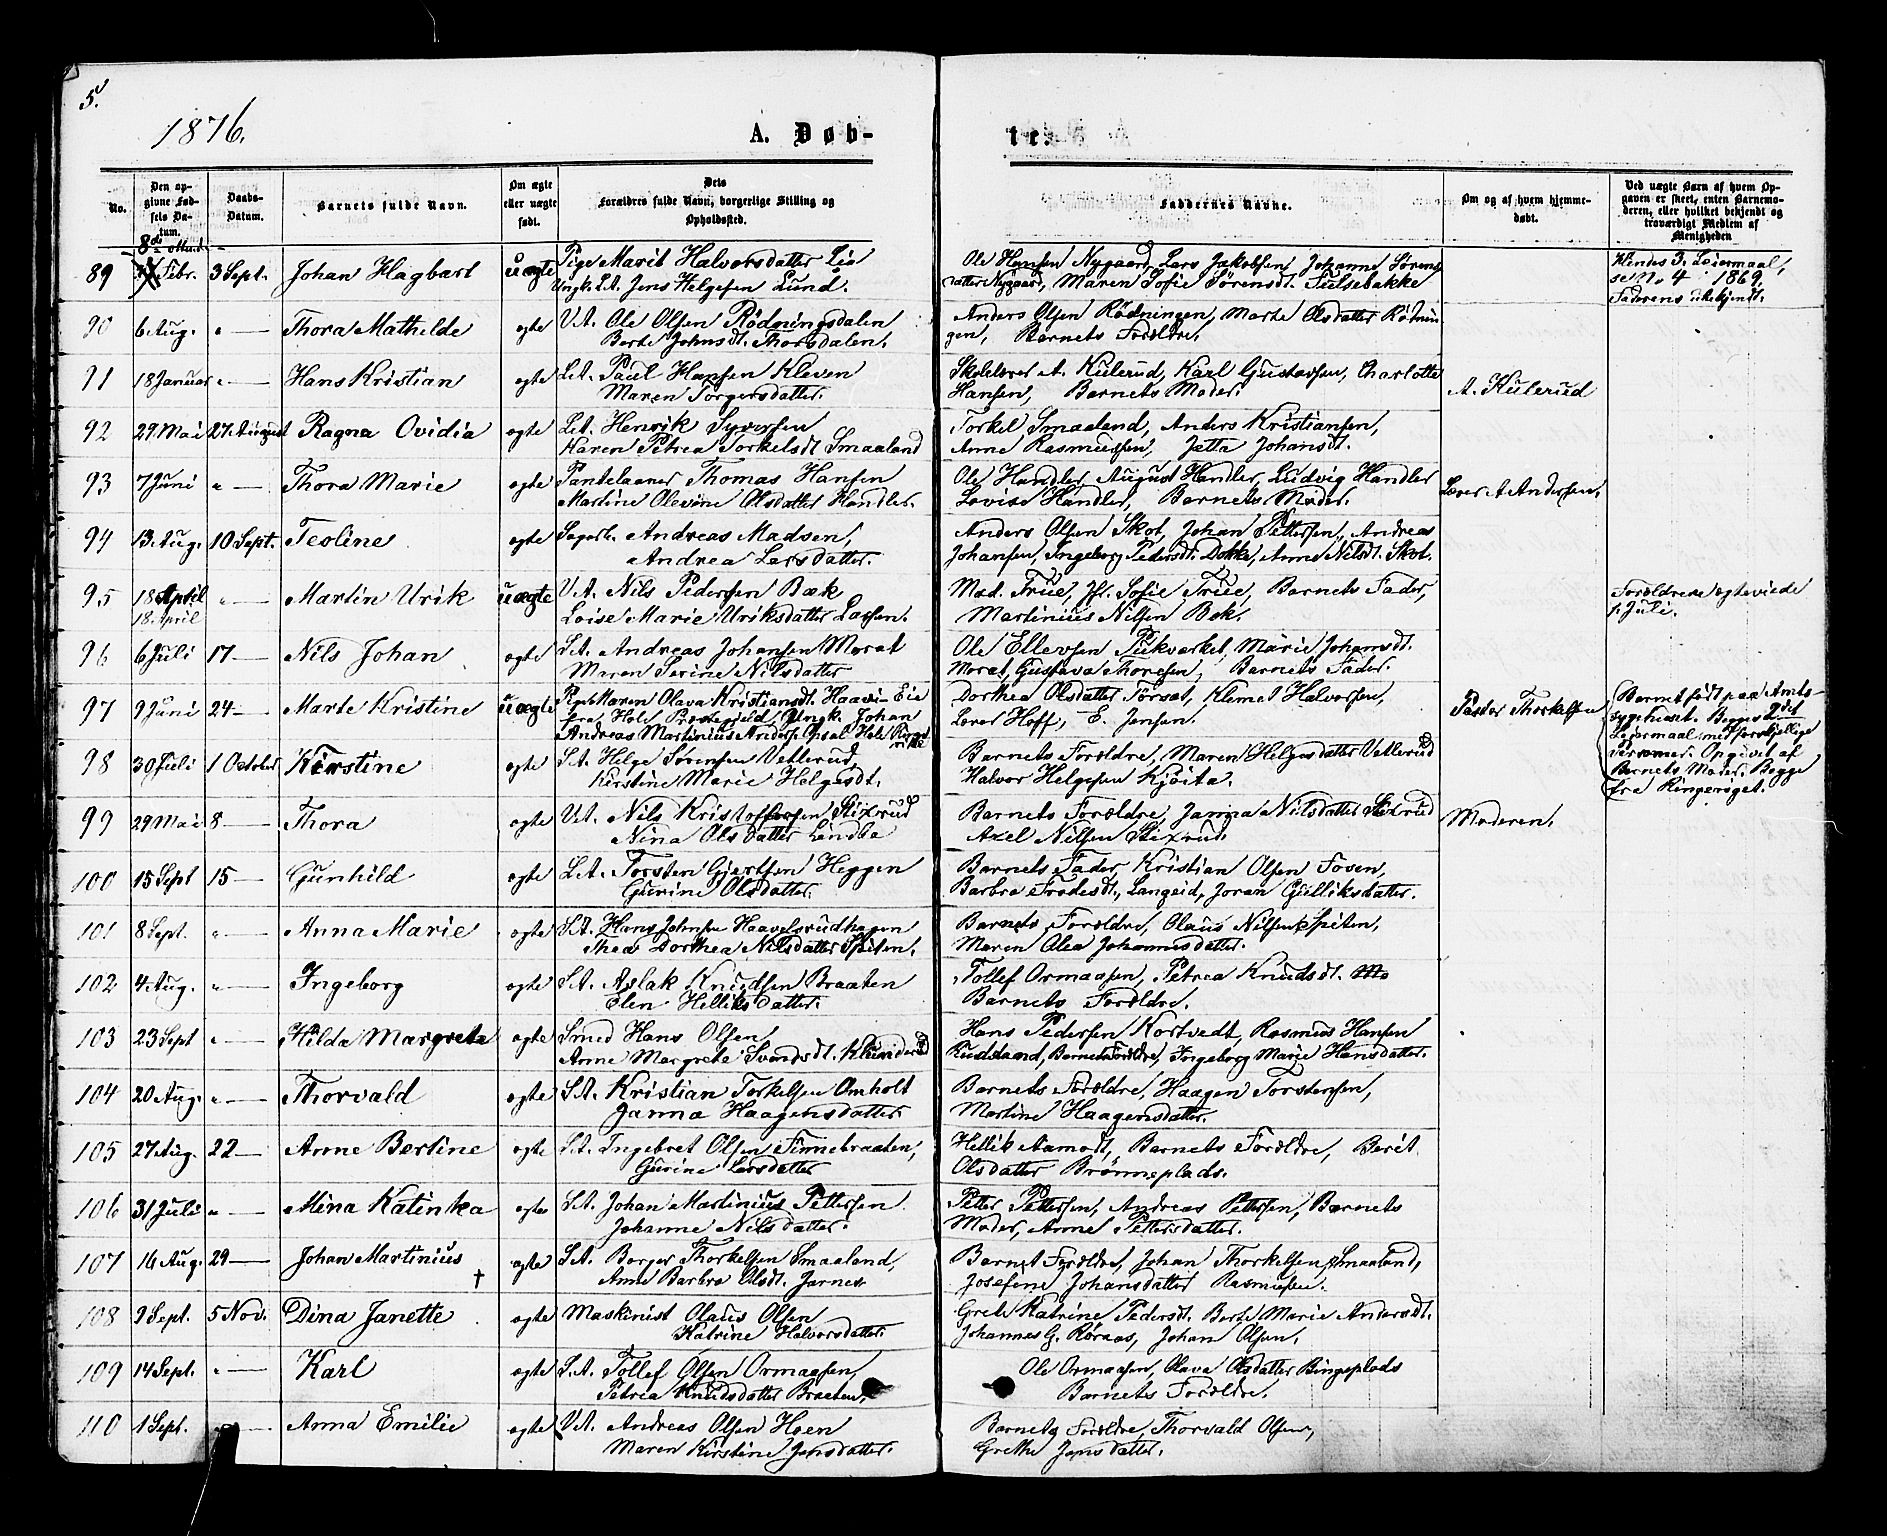 5.
1876.
A. Døb-
te.
No.
Den op-
givne Fød-
sels Da-
tum.
Daabs-
Datum.
Barnets fulde Navn.
Om ægte
eller uægte
født.
Dets
Forældres fulde Navn, borgerlige Stilling og
Opholdssted.
Faddernes Navne.
Om og af hvem hjemme-
døbt.
Ved uægte Barn af hvem Op-
gaven er skeet, enten Barnemo-
deren, eller hvilket bekjendt og
troværdigt Medlem af
Menigheden
89 Febr. 3 Sept. Johan Hagbart uægte Pige Marit Halvorsdatter Lia
Ungk. L.A. Jens Helgesen Lund.
Ole Hansen Nygaard, Lars Jakobsen, Johanne Sørens
datter Nygaard, Maren Sofie Sørensdt. Tielsebakke
Hendes 3. Leiermaal,
se No. 4 i 1869.
Faderens ubekjendt.
90 6 Aug. " — Thora Mathilde ægte V.A. Ole Olsen Rødningsdalen
Berte Johnsdt. Thorsdalen.
Anders Olsen Rødningen, Marte Olsdatter Rødnin
gen, Barnets Forældre.
91 18 Januar " — Hans Kristian ægte L.A. Paul Hansen Kleven
Maren Torgersdatter.
Skolelærer A. Kulerud, Karl Gustavsen, Charlotte
Hansen, Barnets Moder.
A. Kulerud
92 29 Mai 27 August Ragna Ovidia ægte L.A. Henrik Syversen
Karen Petrea Torkelsdt. Smaaland
Torkel Smaaland, Anders Kristiansen,
Anne Rasmussen, Jetta Johansdt.
93 7 Juni " — Thora Marie ægte Pantelaaner Thomas Hansen
Martine Olevine Olsdatter Handler.
Ole Handler, August Handler, Ludvig Handler
Lovise Handler, Barnets Moder.
Lærer A. Andersen.
94 13 Aug. 10 Sept. Teoline ægte Sagarb. Andreas Madsen,
Andrea Larsdatter.
Anders Olsen Skot, Johan Pettersen, Andreas
Johansen, Ingeborg Pedersdt. Dokka, Anne Nilsdt. Skot.
95 18 April " — Martin Urik uægte V.A. Nils Pedersen Bæk
18. April
Loise Marie Uriksdatter Larsen.
Mad. True, Jfr. Sofie True, Barnets Fader,
Martinius Nilsen Bek.
Forældrene ægteviede
i Juli.
96 6 Juli 17 — Nils Johan ægte S.A. Andreas Johansen Morat
Maren Serine Nilsdatter
Ole Ellevsen Pukverket, Marie Johansdt.
Morat, Gustava Thoresen, Barnets Fader.
97 9 Juni 24 — Marte Kristine uægte Pige Maren Olava Kristiansdt. Haavi-Eie
fra Hole Præstegjeld, Ungk. Johan
Andreas Martinius Anders. Opsal Hole Ringe
rike
Dorthea Olsdatter Torsat, Klemet Halvorsen,
Lærer Hoff, E. Jensen.
Pastor Thorkelsen
Barnet født paa Amts-
sygehuset. Begges 2det
Leiermaal med forskjellige
Personer. Opgivet af
Barnets Moder. Begge
fra Ringeriget.
98 30 Juli 1 October Kirstine ægte S.A. Helge Sørensen Vetterud
Kirstine Marie Helgesdt.
Barnets Forældre, Maren Helgesdatter Vetterud
Halvor Helgesen Kjøita.
99 29 Mai 8 — Thora ægte V.A. Nils Kristoffersen Stixrud
Nina Olsdatter Lindbo
Barnets Forældre, Janna Nilsdatter Stixrud
Axel Nilsen Stixrud.
Moderen.
100 15 Sept 15 — Gunhild ægte L.A. Torsten Gjertsen Heggen
Gurine Olsdatter.
Barnets Fader, Kristian Olsen Fosen,
Barbro Frodesdt., Langeid, Joran Gulliksdatter.
101 8 Sept. " — Anna Marie ægte S.A. Hans Johnsen Haavelsrudhagen
Thea Dorthea Nilsdatter Spiten.
Barnets Forældre, Olaus Nilsen Spiten,
Maren Olea Johannesdatter.
102 4 Aug. " — Ingeborg ægte S.A. Aslak Knudsen Braaten
Elen Helliksdatter.
Tollef Ormaasen, Petrea Knudsdt. Mo
Barnets Forældre.
103 23 Sept " — Hilda Margrete ægte Smed Hans Olsen
Anne Margrete Svendsdt. Klunderud
Hans Pedersen Kortvedt, Rasmus Hansen
Rudstaand, Barnets Forældre, Ingeborg Marie Hansdatter.
104 20 Aug. " — Thorvald ægte S.A. Kristian Torkelsen Omholt
Janna Haagensdatter
Barnets Forældre, Haagen Torstensen,
Martine Haagensdatter.
105 27 Aug. 22 — Anne Bertine ægte S.A. Ingebret Olsen Finnebraaten,
Gurine Larsdatter
Hellik Aamodt, Barnets Forældre, Berit
Olsdatter Brønneplads.
106 31 Juli " — Mina Katinka ægte S.A. Johan Martinius Pettersen
Johanne Nilsdatter.
Petter Pettersen, Andreas Pettersen, Barnets
Moder, Anne Pettersdatter.
107 16 Aug. 29 — Johan Martinius † ægte S.A. Borger Thorkelsen Smaaland,
Anne Barbro Olsdt. Jarnes
Barnet Forældre, Johan Thorkelsen Smaaland,
Josefine Johansdatter Rasmussen.
108 9 Sept. 5 Nov. Dina Janette ægte Maskinist Olaus Olsen
Katrine Halvorsdatter.
Grete Katrine Pedersdt. Berte Marie Andersdt.
Johannes G. Røraas, Johan Olsen.
109 14 Sept. " — Karl ægte S.A. Tollef Olsen Ormaasen,
Petrea Knudsdatter Braaten.
Ole Ormaasen, Olava Olsdatter Bingeplads
Barnets Forældre.
110 1 Sept. — Anna Emilie ægte V.A. Andreas Olsen Hoen
Maren Kirstine Jensdatter.
Barnets Forældre, Thorvald Olsen,
Grethe Jansdatter.